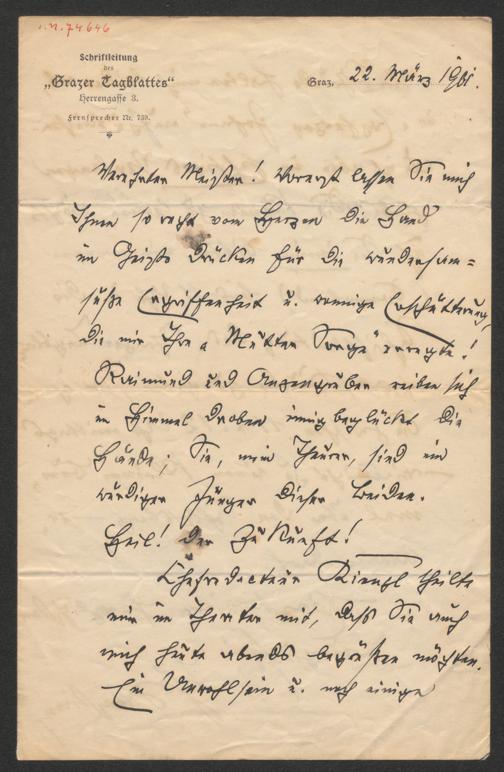 I.N. 74646
Schriftleitung
des
„Grazer Tagblattes“
Herrengasse 3.
Fernsprecher Nr. 739.
Graz, 22. März 1901.
Verehrter Meister! Vorerst lassen Sie mich
Ihnen so recht vom Herzen die Hand
im Geiste drücken für die wundersam=
süße Ergriffenheit u. wonnige Erschütterung,
die mir Ihre „Mutter Sorge“ erregte!
Raimund und Anzengruber reiben sich
im Himmel droben innig beglückt die
Hände; Sie, mein Theurer, sind ein
würdiger Jünger dieser beiden.
Heil! der Zukunft!
Chefredacteur Kienzl theilte
mir im Theater mit, daß Sie auch
mich heute abends begrüßen möchten.
Ein Unwohlsein u. noch einige